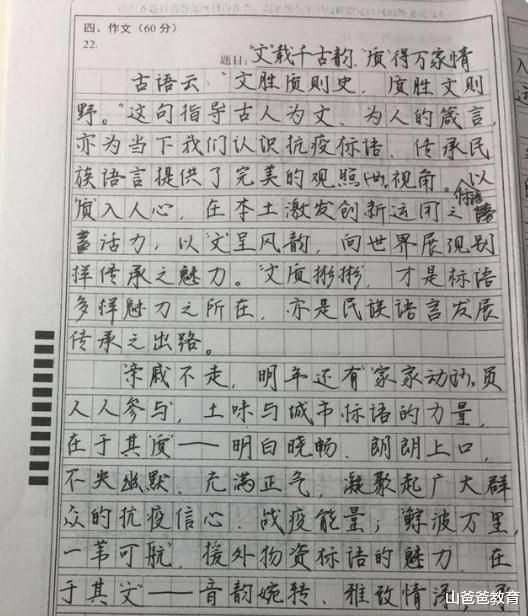 四、作文（60分）
22.
题目：“文”载千古韵 “质”得万家情
古语云：“文胜质则史，质胜文则
野。”这句指导古人为文、为人的箴言，
亦为当下我们认识抗疫标语、传承民
族语言提供了完美的观照视角。以
“质”入人心，在本土激发创新运用之标语
活力，以“文”呈风韵，向世界展现别
样传承之魅力。“文质彬彬”，才是标语
多样魅力之所在，亦是民族语言发展
传承之出路。
“亲戚不走，明年还有”“家家动员，
人人参与”，土味与城市标语的力量，
在于其“质”——明白晓畅、朗朗上口，
不失幽默、充满正气，凝聚起广大群
众的抗疫信心、战疫能量；“鲸波万里，
一苇可航”，援外物资标语的魅力，在
于其“文”——音韵婉转、雅致情深，
山爸爸教育